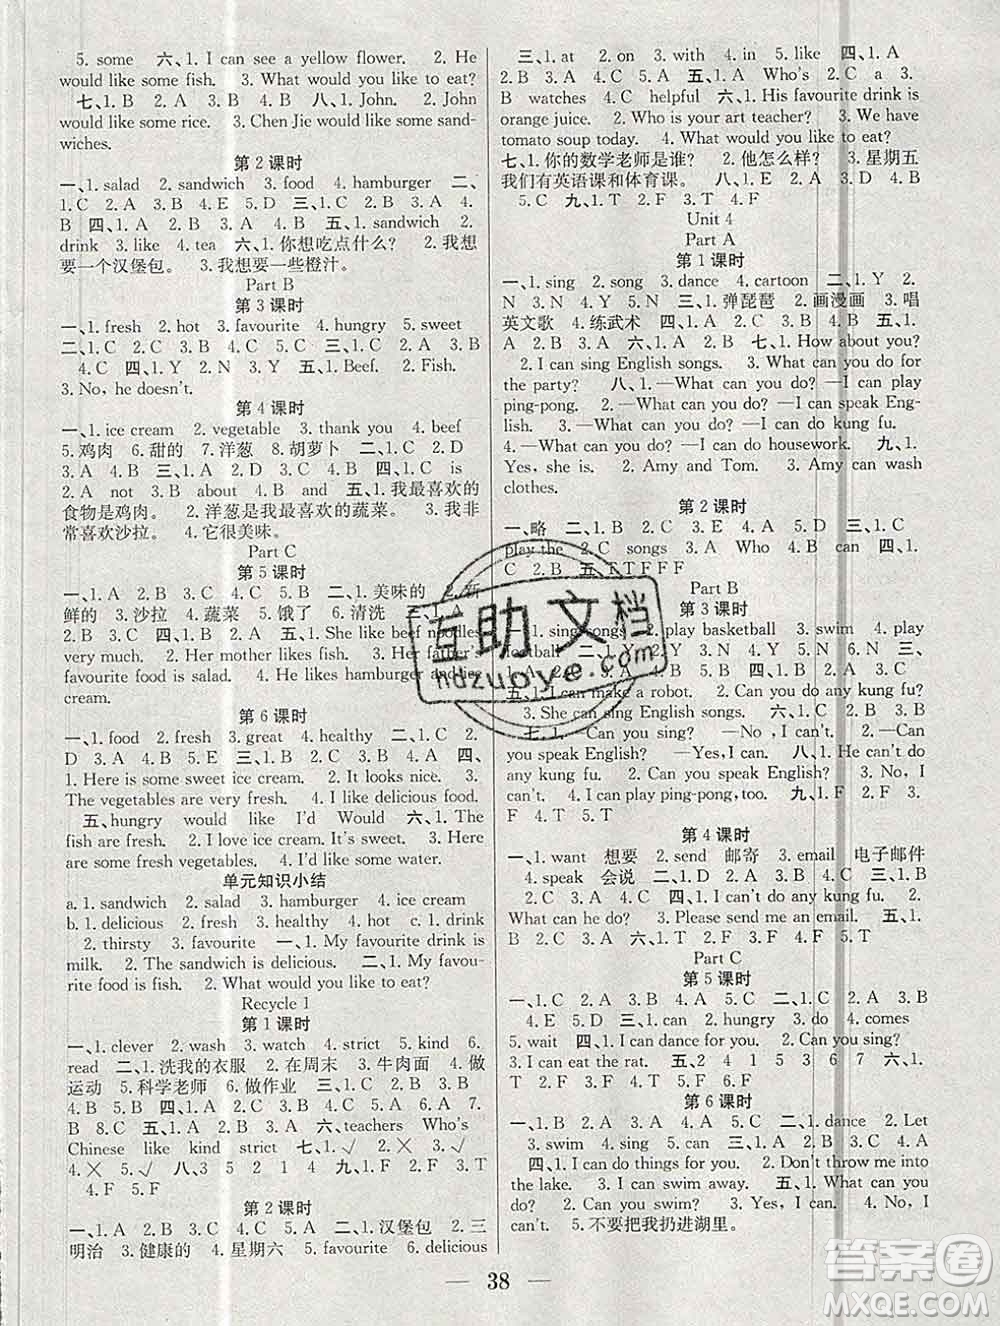 5. some　六、1. I can see a yellow flower.　2. He
would like some fish.　3. What would you like to eat?
七、1. B　2. A　3. B　4. B　八、1. John.　2. John
would like some rice.　3. Chen Jie would like some sand-
wiches.
第 2 课时
一、1. salad　2. sandwich　3. food　4. hamburger　二、
1. C　2. B　3. A　4. E　5. D　三、1. C　2. A　3. A　4.
B　四、1. A　2. B　3. A　4. B　五、1. sandwich　2.
drink　3. like　4. tea　六、1. 你想吃点什么?　2. 我想
要一个汉堡包。　3. 我想要一些橙汁。
Part B
第 3 课时
一、1. fresh　2. hot　3. favourite　4. hungry　5. sweet
二、1. C　2. B　3. C　4. B　5. A　三、1. C　2. A　3. B
4. C　四、1. Y　2. N　五、1. Beef.　2. Fish.
3. No, he doesn't.
第 4 课时
一、1. ice cream　2. vegetable　3. thank you　4. beef
5. 鸡肉　6. 甜的　7. 洋葱　8. 胡萝卜　二、1. C　2. D
3. A　4. B　三、1. A　2. C　3. A　4. C　四、1. C　is
2. A　not　3. B　about　4. B　and　五、1. 我最喜欢的
食物是鸡肉。　2. 洋葱是我最喜欢的蔬菜。　3. 我非
常喜欢沙拉。　4. 它很美味。
Part C
第 5 课时
一、1. B　2. A　3. B　4. C　5. A　二、1. 美味的　2. 新
鲜的　3. 沙拉　4. 蔬菜　5. 饿了　6. 清洗　三、1. A
2. B　3. A　4. B　四、1. She like beef noodles
very much.　2. Her mother likes fish.　3. Her father's
favourite food is salad.　4. He likes hamburger and ice
cream.
第 6 课时
一、1. food　2. fresh　3. great　4. healthy　二、1. C　2.
D　3. A　4. B　三、1. B　2. C　3. D　4. A　四、
1. Here is some sweet ice cream.　2. It looks nice.　3.
The vegetables are very fresh.　4. I like delicious food.
五、hungry　would　like　I'd　Would　六、1. The
fish are fresh.　2. I love ice cream. It's sweet.　3. Here
are some fresh vegetables.　4. I'd like some water.
单元知识小结
a. 1. sandwich　2. salad　3. hamburger　4. ice cream
b. 1. delicious　2. fresh　3. healthy　4. hot　c. 1. drink
2. thirsty　3. favourite　一、1. My favourite drink is
milk.　2. The sandwich is delicious.　二、1. My favou-
rite food is fish.　2. What would you like to eat?
Recycle 1
第 1 课时
一、1. clever　2. wash　3. watch　4. strict　5. kind　6.
read　二、1. 洗我的衣服　2. 在周末　3. 牛肉面　4. 做
运动　5. 科学老师　6. 做作业　三、1. C　2. A　3. C
4. B　5. B　四、1. A　2. C　3. A　4. B　5. A　6. B　7.
B　8. C　五、1. A　2. A　3. A　六、teachers　Who's
Chinese　like　kind　strict　七、1. √　2. ╳　3. √
4. ╳　5. √　八、3　5　2　1　4　九、1. F　2. F　3. T
4. F　5. F
第 2 课时
一、1. A　2. B　3. C　4. B　二、1. 汉堡包　2. 三
明治　3. 健康的　4. 星期六　5. favourite　6. delicious
三、1. at　2. on　3. with　4. in　5. like　四、1. A
2. B　3. B　4. C　5. A　五、1. A　Who's　2. C　a　3.
B　watches　4. C　helpful　六、1. His favourite drink is
orange juice.　2. Who is your art teacher?　3. We have
tomato soup today.　4. What would you like to eat?
七、1. 你的数学老师是谁?　2. 他怎么样?　3. 星期五
我们有英语课和体育课。　八、1. E　2. D　3. A　4. B
5. C　九、1. T　2. F　3. T　4. F
Unit 4
Part A
第 1 课时
一、1. sing　2. song　3. dance　4. cartoon　二、1. Y　2.
N　3. N　4. Y　5. Y　三、1. 弹琵琶　2. 画漫画　3. 唱
英文歌　4. 练武术　四、1. A　2. B　3. A　4. B　五、1.
C　2. C　3. A　六、1. B　2. A　七、1. How about you?
2. I can sing English songs.　3. What can you do for
the party?　八、1. —What can you do?　—I can play
ping-pong.　2. —What can you do?　—I can speak Eng-
lish.　3. —What can you do?　—I can do kung fu.
4. —What can you do?　—I can do housework.　九、1.
Yes, she is.　2. Amy and Tom.　3. Amy can wash
clothes.
第 2 课时
一、略　二、1. B　2. C　3. E　4. A　5. D　三、1. C
play the　2. C　songs　3. A　Who　4. B　can　四、1.
C　2. B　五、T T F F F
Part B
第 3 课时
一、1. sing songs　2. play basketball　3. swim　4. play
football　二、1. Y　2. Y　3. N　4. N　三、1. A　2. C
3. A　4. C　四、1. A　2. C　3. B　4. C　5. B
五、1. I can make a robot.　2. Can you do any kung fu?
3. She can sing English songs.　六、1. C　2. A　3. B
七、1. —Can you sing?　—No, I can't.　2. —Can
you speak English?　—Yes, I can.　八、1. He can't do
any kung fu.　2. Can you speak English?　3. No, I
can't.　4. I can play ping-pong, too.　九、1. F　2. F　3.
F　4. T　5. T
第 4 课时
一、1. want　想要　2. send　邮寄　3. email　电子邮件
4. speak　会说　二、1. B　2. A　3. C　4. B　5. A　三、
1. C　2. B　3. C　4. A　四、1. I can't do any kung fu.　2.
What can he do?　3. Please send me an email.　五、1.
B　2. B　3. C　4. B　六、1. T　2. T　3. F　4. F　5. T
Part C
第 5 课时
一、1. C　2. A　3. B　4. A　5. A　二、1. C　2. A　3. B
4. E　5. D　三、1. can　2. hungry　3. do　4. comes
5. wait　四、1. I can dance for you.　2. I can swim.
3. I can eat the rat.　五、2　4　1　5　3　6　7　六、1.
T　2. F　3. F　4. T　5. F
第 6 课时
一、1. B　2. A　3. B　4. A　5. C　二、1. dance　2. Let
3. swim　4. sing　5. can　三、1. B　2. D　3. C　4. A
四、1. I can do things for you.　2. Don't throw me into
the lake.　3. I can swim away.　五、1. What can you
do?　2. Can you swim?　3. Yes, I can.　4. No, I
can't.　5. 不要把我扔进湖里。
— 38 —
互助文档
huzuoye.com
答案圈
MXQE.COM